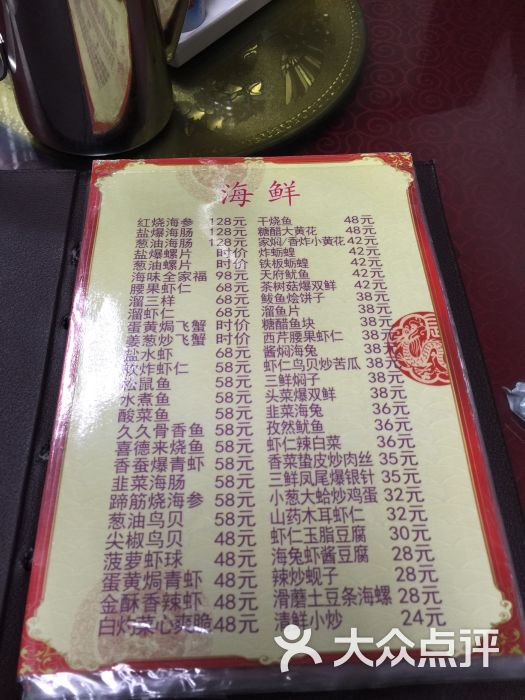 海鲜
红烧海参 128元
盐爆海肠 128元
葱油海肠 128元
盐爆螺片 时价
葱油螺片 时价
海味全家福 98元
腰果虾仁 68元
溜三样 68元
溜虾仁 68元
蛋黄焗飞蟹 时价
姜葱炒飞蟹 时价
盐水虾 68元
软炸虾仁 58元
松鼠鱼 58元
水煮鱼 58元
酸菜鱼 58元
久久骨香鱼 58元
喜德来烧鱼 58元
香蚕爆青虾 58元
韭菜海肠 58元
蹄筋烧海参 58元
葱油鸟贝 58元
尖椒鸟贝 58元
菠萝虾球 48元
蛋黄焗青虾 48元
金酥香辣虾 48元
白灼菜心爽脆 48元
干烧鱼 48元
糖醋大黄花 48元
家焖/香炸小黄花 42元
炸蛎蝗 42元
铁板蛎蝗 42元
天府鱿鱼 42元
茶树菇爆双鲜 42元
鲅鱼烩饼子 38元
溜鱼片 38元
糖醋鱼块 38元
西芹腰果虾仁 38元
酱焖海兔 38元
虾仁鸟贝炒苦瓜 38元
三鲜焖子 38元
头菜爆双鲜 38元
韭菜海兔 36元
孜然鱿鱼 36元
虾仁辣白菜 36元
香菜蛰皮炒肉丝 35元
三鲜凤尾爆银针 35元
小葱大蛤炒鸡蛋 32元
山药木耳虾仁 32元
虾仁玉脂豆腐 30元
海兔虾酱豆腐 28元
辣炒蚬子 28元
滑蘑土豆条海螺 28元
渍鲜小炒 24元
大众点评